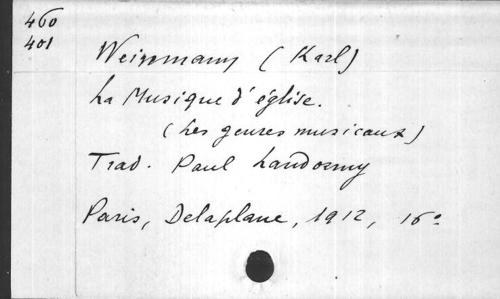 460
401
Weinmann (Karl)
La Musique d'église.
(Les genres musicaux)
Trad. Paul Landormy
Paris, Delaplane, 1912, 16º